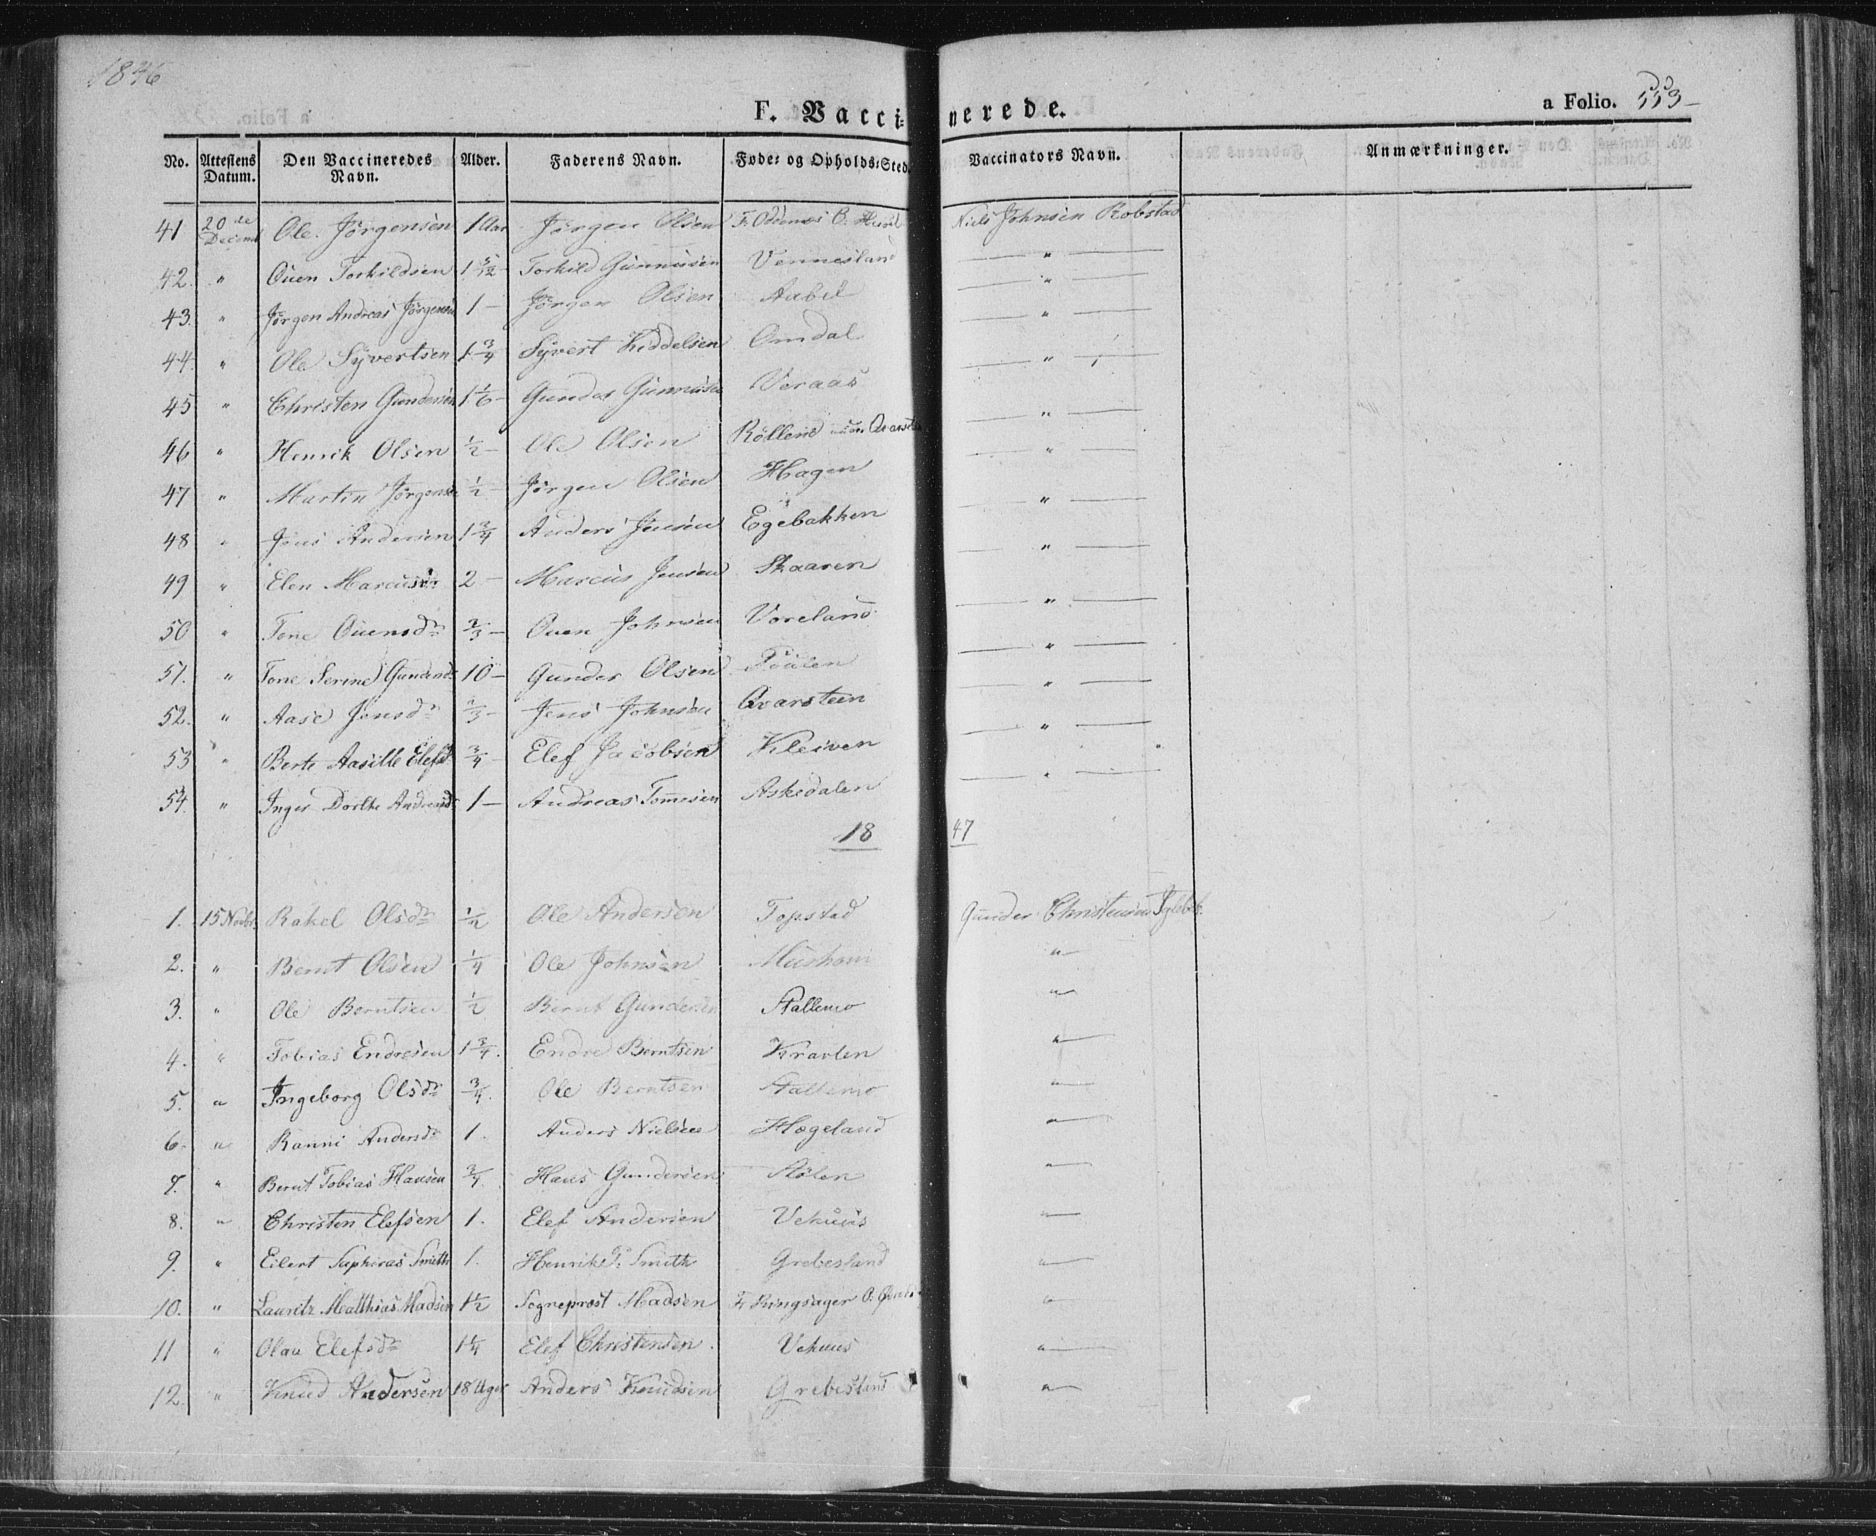 1846
F. Vaccinerede.
a Folio. 553
No. Attestens Datum. Den Vaccineredes Navn. Alder. Faderens Navn. Føde- og Opholds-Sted. Vaccinators Navn. Anmærkninger.
41 20de Decemb Ole Jørgensen 1 Aar Jørgen Olsen F. Niels Johnsen Robstad
42. " Ouen Torkildsen 1 5/12 Torkild Gunnusen Vennesland — " —
43. " Jørgen Andreas Jørgensen 1 — Jørgen Olsen Aabel — " —
44. " Ole Syvertsen 1 3/4 Syvert Keddelsen Omdal — " —
45 " Christen Gundersen 1 1/6 — Gunder Gunnusen Veraas — " —
46 " Henrik Olsen 1/2 — Ole Olsen — " —
47 " Martin Jørgensen 1/2 — Jørgen Olsen Hagen — " —
48 " Jens Andersen 1 3/4 Anders Jensen Egebakken — " —
49 " Elen Marcusdr 2 — Marcus Jensen Skaaren — " —
50 " Tone Ouensdr 2/3 — Ouen Johnsen Voreland — " —
51. " Tone Serine Gundersd 10 — Gunder Olsen — " —
52. " Aase Jensdr 1/3 — Jens Johnsen Qvarsteen — " —
53 " Berte Aasille Elefsd 3/4 — Elef Jacobsen Kleiven — " —
54. " Inger Dorthe Andreasd 1 — Andreas Tommesen Askedalen — " —
1847
1. 15 Novbr. Rakel Olsdr 1/2 Ole Andersen Topstad Gunder Christensen
2. " Bernt Olsen 1/4 Ole Johnsen "
3. " Ole Berntsen 1/2 Bernt Gundersen Stallemo "
4. " Tobias Endresen 1 3/4. Endre Berntsen "
5. " Ingeborg Olsdr 3/4. Ole Berntsen Stallemo "
6. " Ranni Andersdr 1. Anders Nielsen Hægeland "
7. " Bernt Tobias Hansen 3/4. Hans Gundersen Stølen "
8. " Christen Elefsen 1. Elef Andersen Vehuus "
9. " Eilert Saphiras Smith 1. Henrik F. Smith Grebesland "
10. " Lauritz Matthias Madsen 1 1/2 Sogneprost Madsen F. Ringsager O. "
11 " Olau Elefsdr 1 1/4 Elef Christensen. Vehuus "
12. " Knud Andersen 18 Uger Anders Knudsen Grebesland "